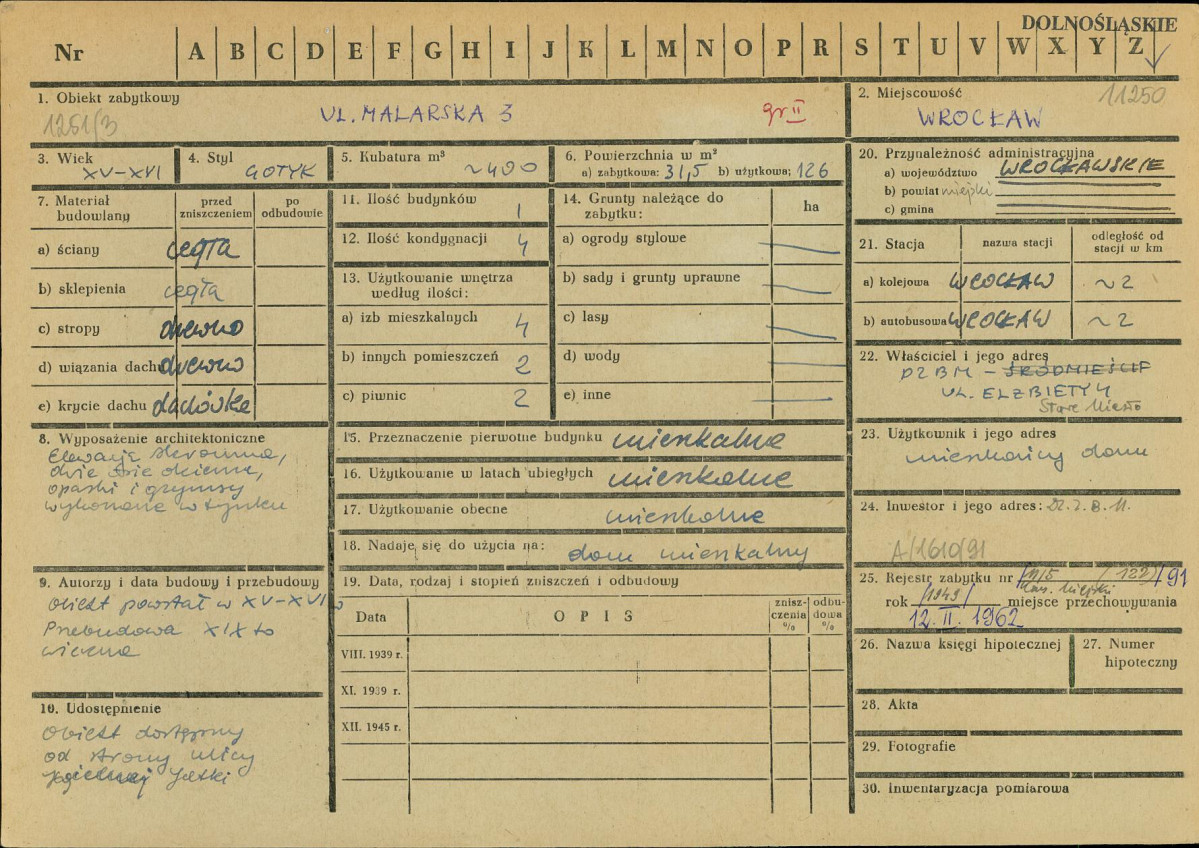 DOLNOŚLĄSKIE
Nr A B C D E F G H I J K L M N O P R S T U V W X Y Z
1. Obiekt zabytkowy
1261/3
UL. MALARSKA 3
gr II
2. Miejscowość
11250
WROCŁAW
3. Wiek
XV-XVI
4. Styl
GOTYK
5. Kubatura m³
~400
6. Powierzchnia w m²
a) zabytkowa: 31,5 b) użytkowa; 126
7. Materiał budowlany
przed zniszczeniem
po odbudowie
a) ściany cegła
b) sklepienia cegła
c) stropy drewno
d) wiązania dachu drewno
e) krycie dachu dachówka
8. Wyposażenie architektoniczne
Elewacja skromna,
dwie osie okienne,
opaski i gzymsy
wykonane w tynku
9. Autorzy i data budowy i przebudowy
Obiekt powstał w XV-XVI w
Przebudowa XIX to
wieczna
10. Udostępnienie
Obiekt dostępny
od strony ulicy
Jatki
11. Ilość budynków 1
12. Ilość kondygnacji 4
13. Użytkowanie wnętrza
według ilości:
a) izb mieszkalnych 4
b) innych pomieszczeń 2
c) piwnic 2
14. Grunty należące do
zabytku:
ha
a) ogrody stylowe
b) sady i grunty uprawne
c) lasy
d) wody
e) inne
15. Przeznaczenie pierwotne budynku mieszkalne
16. Użytkowanie w latach ubiegłych mieszkalne
17. Użytkowanie obecne mieszkalne
18. Nadaje się do użycia na: dom mieszkalny
19. Data, rodzaj i stopień zniszczeń i odbudowy
Data
OPIS
znisz-
czenia
%
odbu-
dowa
%
VIII. 1939 r.
XI. 1939 r.
XII. 1945 r.
20. Przynależność administracyjna
a) województwo WROCŁAWSKIE
b) powiat miejski
c) gmina
21. Stacja
nazwa stacji
odległość od
stacji w km
a) kolejowa WROCŁAW ~2
b) autobusowa WROCŁAW ~2
22. Właściciel i jego adres
DZBM - ŚRÓDMIEŚCIE
UL. ELZBIETY 4
Stare Miasto
23. Użytkownik i jego adres
mieszkańcy domu
24. Inwestor i jego adres: DZ.Z.B.M.
A/1610/91
25. Rejestr zabytku nr /122/ /91
Kons. Miejski
rok /1949/ miejsce przechowywania
12. II. 1962
26. Nazwa księgi hipotecznej
27. Numer
hipoteczny
28. Akta
29. Fotografie
30. Inwentaryzacja pomiarowa